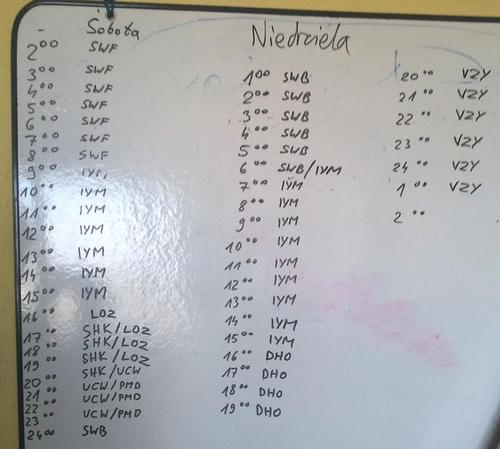 - Sobota
2⁰⁰ SWF
3⁰⁰ SWF
4⁰⁰ SWF
5⁰⁰ SWF
6⁰⁰ SWF
7⁰⁰ SWF
8⁰⁰ SWF
9⁰⁰ IYM
10⁰⁰ IYM
11⁰⁰ IYM
12⁰⁰ IYM
13⁰⁰ IYM
14⁰⁰ IYM
15⁰⁰ IYM
16⁰⁰ LOZ
17⁰⁰ SHK/LOZ
18⁰⁰ SHK/LOZ
19⁰⁰ SHK/LOZ
20⁰⁰ SHK/UCW
21⁰⁰ UCW/PMD
22⁰⁰ UCW/PMD
23⁰⁰ UCW/PMD
24⁰⁰ SWB
Niedziela
1⁰⁰ SWB
2⁰⁰ SWB
3⁰⁰ SWB
4⁰⁰ SWB
5⁰⁰ SWB
6⁰⁰ SWB/IYM
7⁰⁰ IYM
8⁰⁰ IYM
9⁰⁰ IYM
10⁰⁰ IYM
11⁰⁰ IYM
12⁰⁰ IYM
13⁰⁰ IYM
14⁰⁰ IYM
15⁰⁰ IYM
16⁰⁰ DHO
17⁰⁰ DHO
18⁰⁰ DHO
19⁰⁰ DHO
20⁰⁰ VZY
21⁰⁰ VZY
22⁰⁰ VZY
23⁰⁰ VZY
24⁰⁰ VZY
1⁰⁰ VZY
2⁰⁰